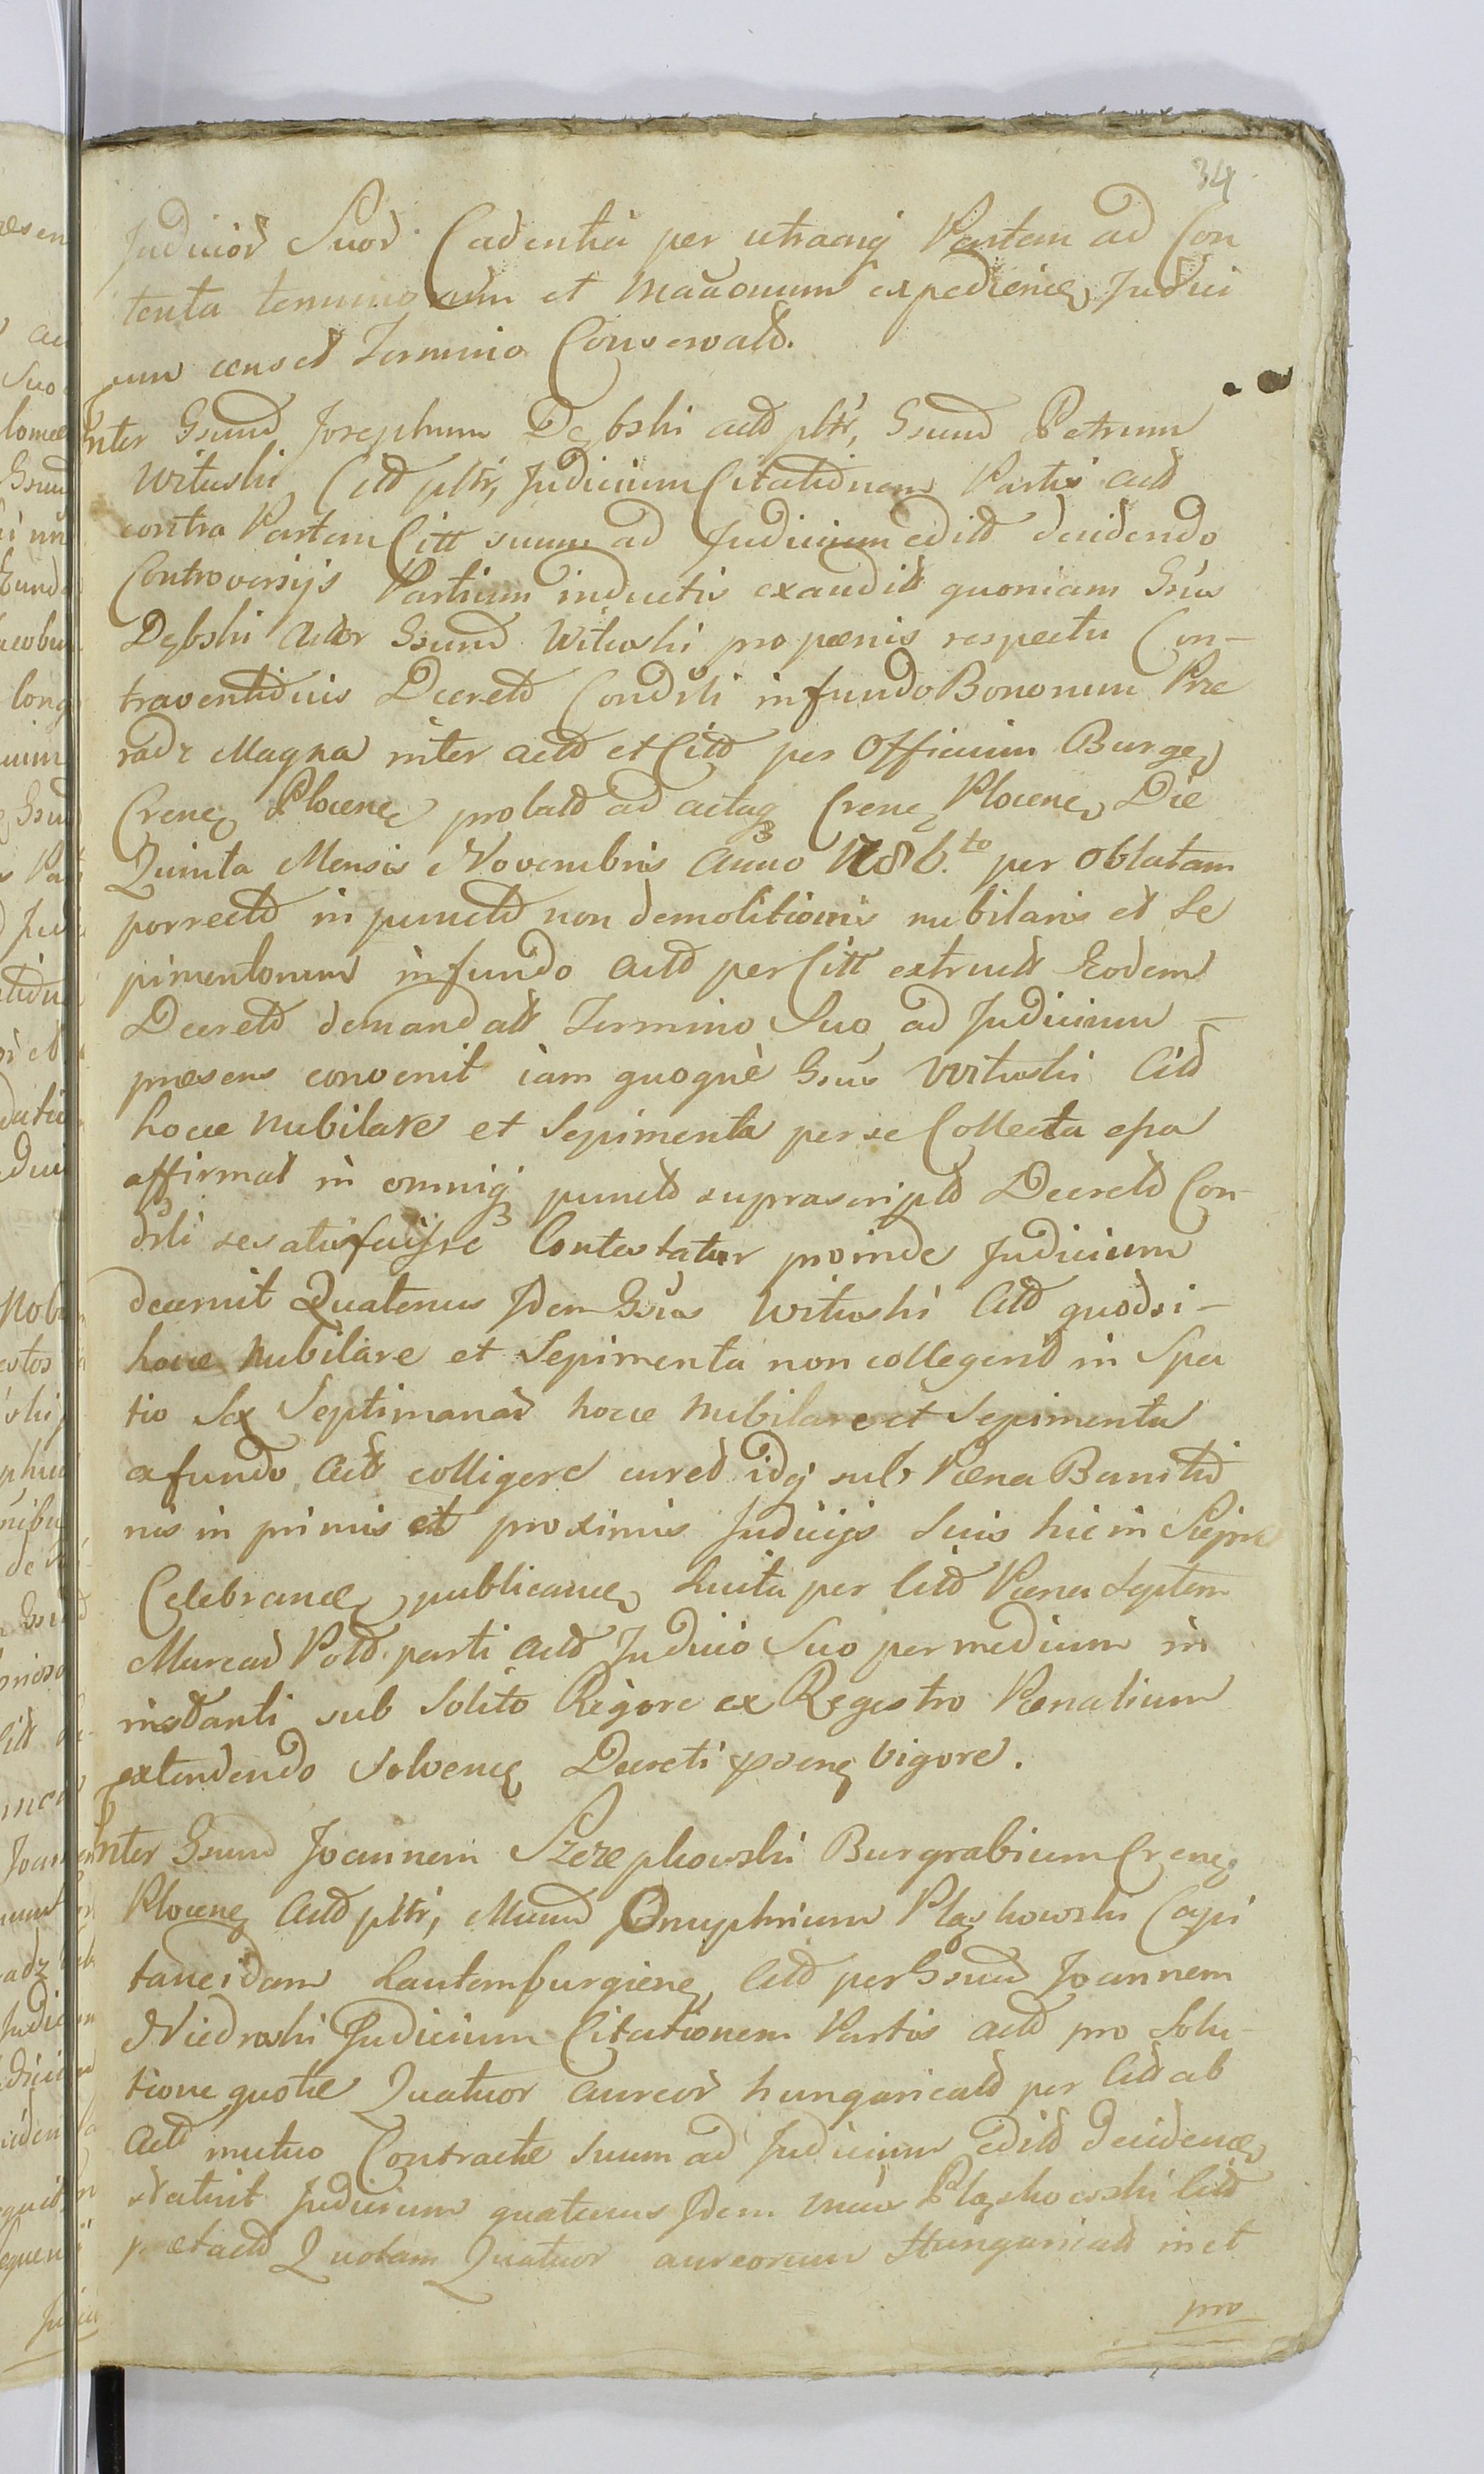 34
Judicior Suor Cadentia per utramq Partem ad Con
tenta terminorum et expedienę Judici
um censet Termino Conservato.
Inter Gsum Josephum Dębski actd pltr, Gsum Petrum
Wituski Citd pltr, Judicium Citationem Partis actd
contra Partem Citt suum ad Judicium editd decidendo
Controversijs Partium inductis exaudit quoniam Gsus
Dębski actor Gsum Wituski pro pœnis respectu Con-
traventionis Decretd Condsli in fundo Bonorum Prze
radz Magna inter actd et Citd per Officium Burgę
Crenę Plocenę prolatd ad actaq Crenę Plocenę Die
Quinta Mensis Novembris Anno 1786.to per Oblatam
porrectd in punctd non demolitionis nubilaris et Se
pimentorum in fundo actd per Citt extructt Eodem
Decretd demandatt Termino Suo ad Judicium -
præsens convenit iam quoquè Gsus Wituski Citd
hocce Nubilare et Sepimenta per se Collecta esse
affirmat in omniq punctd suprascriptd Decretd Con-
dsli se satisfecisse Contestatur proinde Judicium
decernit Quatenus Idem Gsus Wituski Citd quodsi -
hocce Nubilare et Sepimenta non collegerit in Spa
tio Sex Septimanar hocce Nubilare et Sepimenta
ex fundo actd colligere curet idq sub Pœna Bannitio
nis in primis et proximis Judicijs Suis hic in Sierpc
Celebrandę publicandę Luita per Citd Pœna Septem
Marcar Pold parti actd Judicio Suo per medium in
instanti sub Solito Rigore ex Regestro Pœnalium
extendendo Solvenę Decreti psenę vigore.
Inter Gsum Joannem Szczepkowski Burgrabium Crenę
Plocenę actd pltr, Mum Onuphrium Pląskowski Capi
taneidam Lautemburgienę Citd per Gsum Joannem
Niedroski Judicium Citationem Partis actd pro Solu-
tione quotæ Quatuor aureor hungaricald per Citd ab
actd mutuo Contractæ suum ad Judicium editd decidenę
statuit Judicium quatenus Idem Mus Pląskowski Citd
Quotam Quatuor aureorum Hungaricald in et
pro